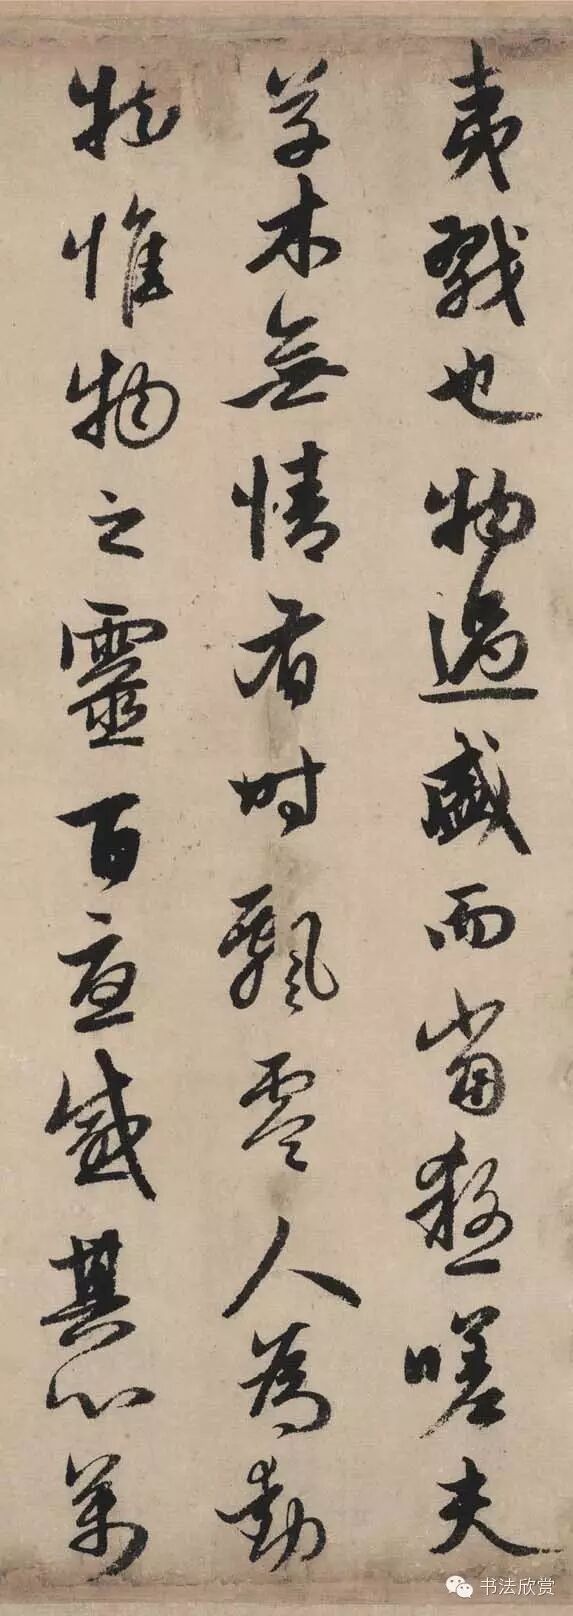 夷戮也物過盛而當殺嗟夫
草木無情有時飄零人為動
物惟物之靈百憂感其心萬
书法欣赏